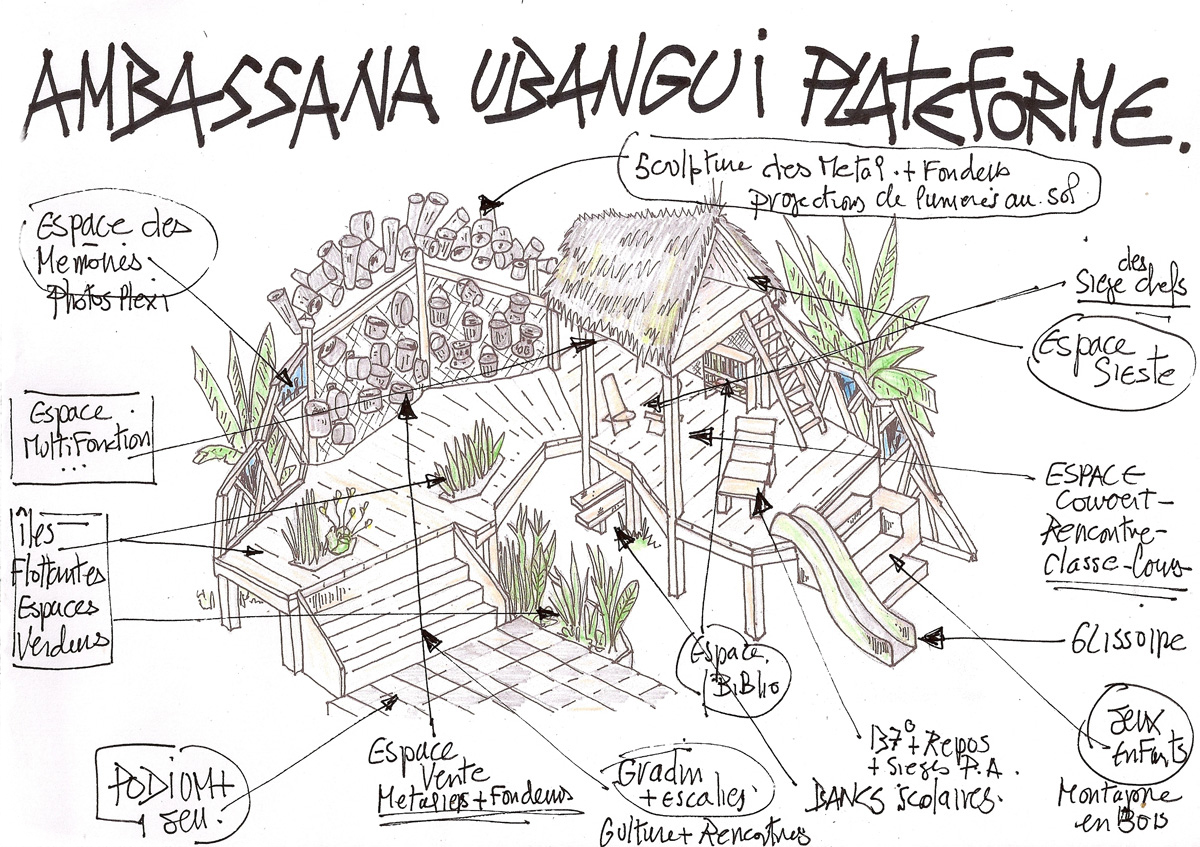 AMBASSANA UBANGUI PLATEFORME.
Sculpture des Metal. + Fondeurs
projections de lumières au sol
Espace des
Memoires
Photos Plexi
des
Siege chefs
Espace
Sieste
Espace
MultiFonction
...
ESPACE
Couvert-
Rencontre-
Classe-Cours
Îles
Flottantes
Espaces
Verdurs
GLissoire
Espace
BiBlio
Jeux
enfants
Montagne
en Bois
PODIUM+
Jeu.
Espace
Vente
Metaliers + Fondeurs
Gradin
+ escalier
Culture + Rencontres
137° + Repos
+ Sieges P.A.
BANCS Scolaires.